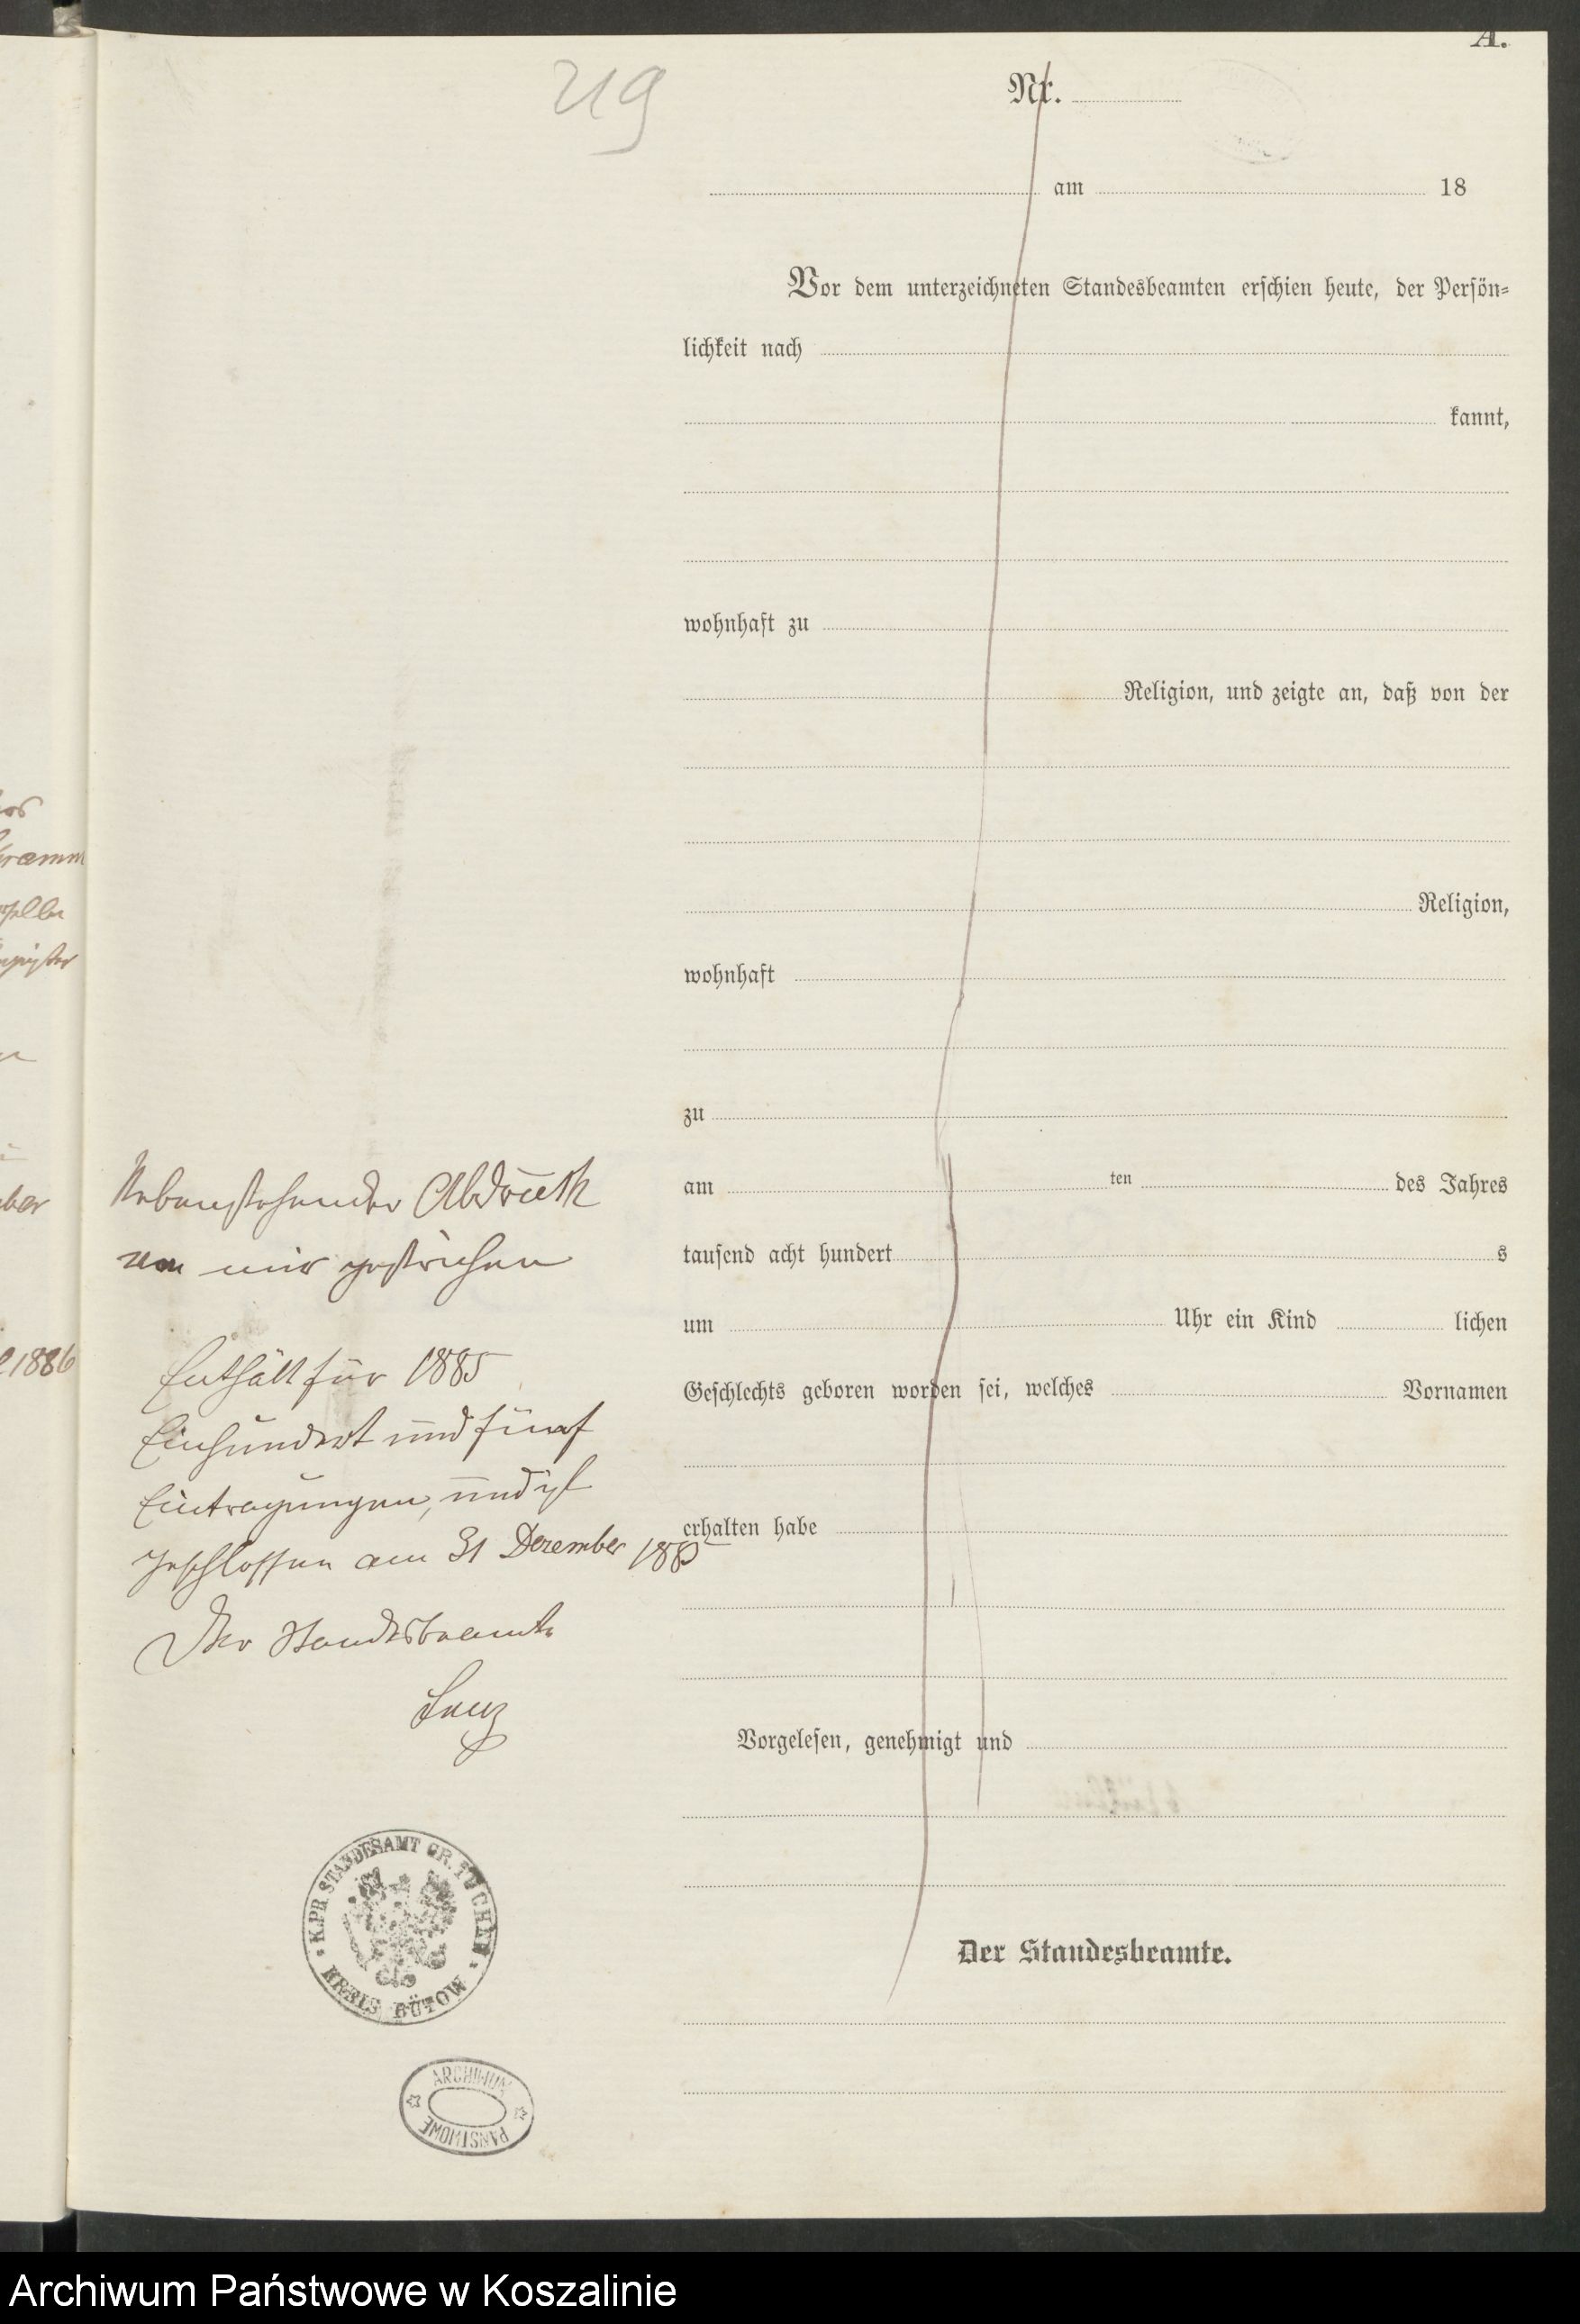 A.
219
Nr.
am 18
Vor dem unterzeichneten Standesbeamten erschien heute, der Persön-
lichkeit nach
kannt,
wohnhaft zu
Religion, und zeigte an, daß von der
Religion,
wohnhaft
zu
am ten des Jahres
tausend acht hundert s
um Uhr ein Kind lichen
Geschlechts geboren worden sei, welches Vornamen
erhalten habe
Vorgelesen, genehmigt und
Der Standesbeamte.
Nebenstehender Abdruck
von mir gestrichen
Enthält für 1885
Einhundert und fünf
Eintragungen, und ist
geschlossen am 31 Dezember 1885
Der Standesbeamte
Lenz
K.PR. STANDESAMT GR. TUCHEN
KREIS BÜTOW
ARCHIWUM
PAŃSTWOWE
ber
1886
Archiwum Państwowe w Koszalinie